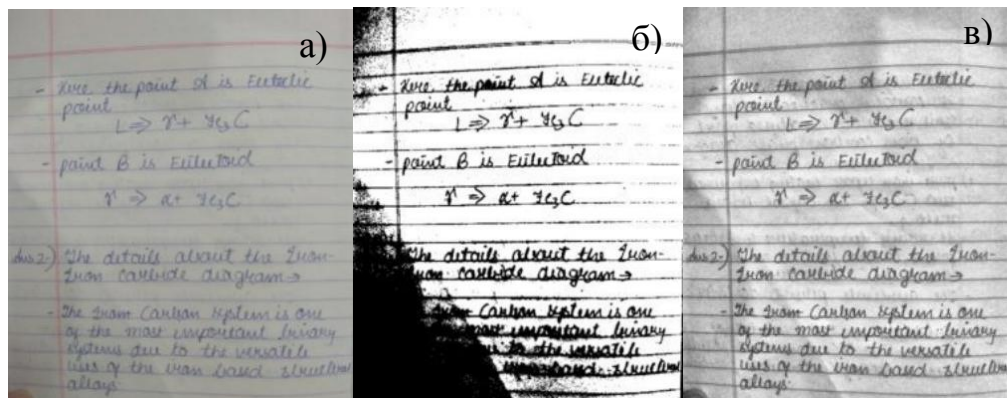 а)
- Here the point A is Eutectic
point
L ⇒ γ + Fe3C
- point B is Eutectoid
γ ⇒ α + Fe3C
Ans 2-) The details about the Iron-
Iron carbide diagram →
- The Iron Carbon system is one
of the most important binary
systems due to the versatile
uses of the iron based structural
alloys
б)
- Here the point A is Eutectic
point
L ⇒ γ + Fe3C
- point B is Eutectoid
γ ⇒ α + Fe3C
The details about the Iron-
Iron carbide diagram →
Iron Carbon system is one
most important binary
due to the versatile
based structural
в)
- Here the point A is Eutectic
point
L ⇒ γ + Fe3C
- point B is Eutectoid
γ ⇒ α + Fe3C
Ans 2-) The details about the Iron-
Iron carbide diagram →
- The Iron Carbon system is one
of the most important binary
systems due to the versatile
uses of the iron based structural
alloys